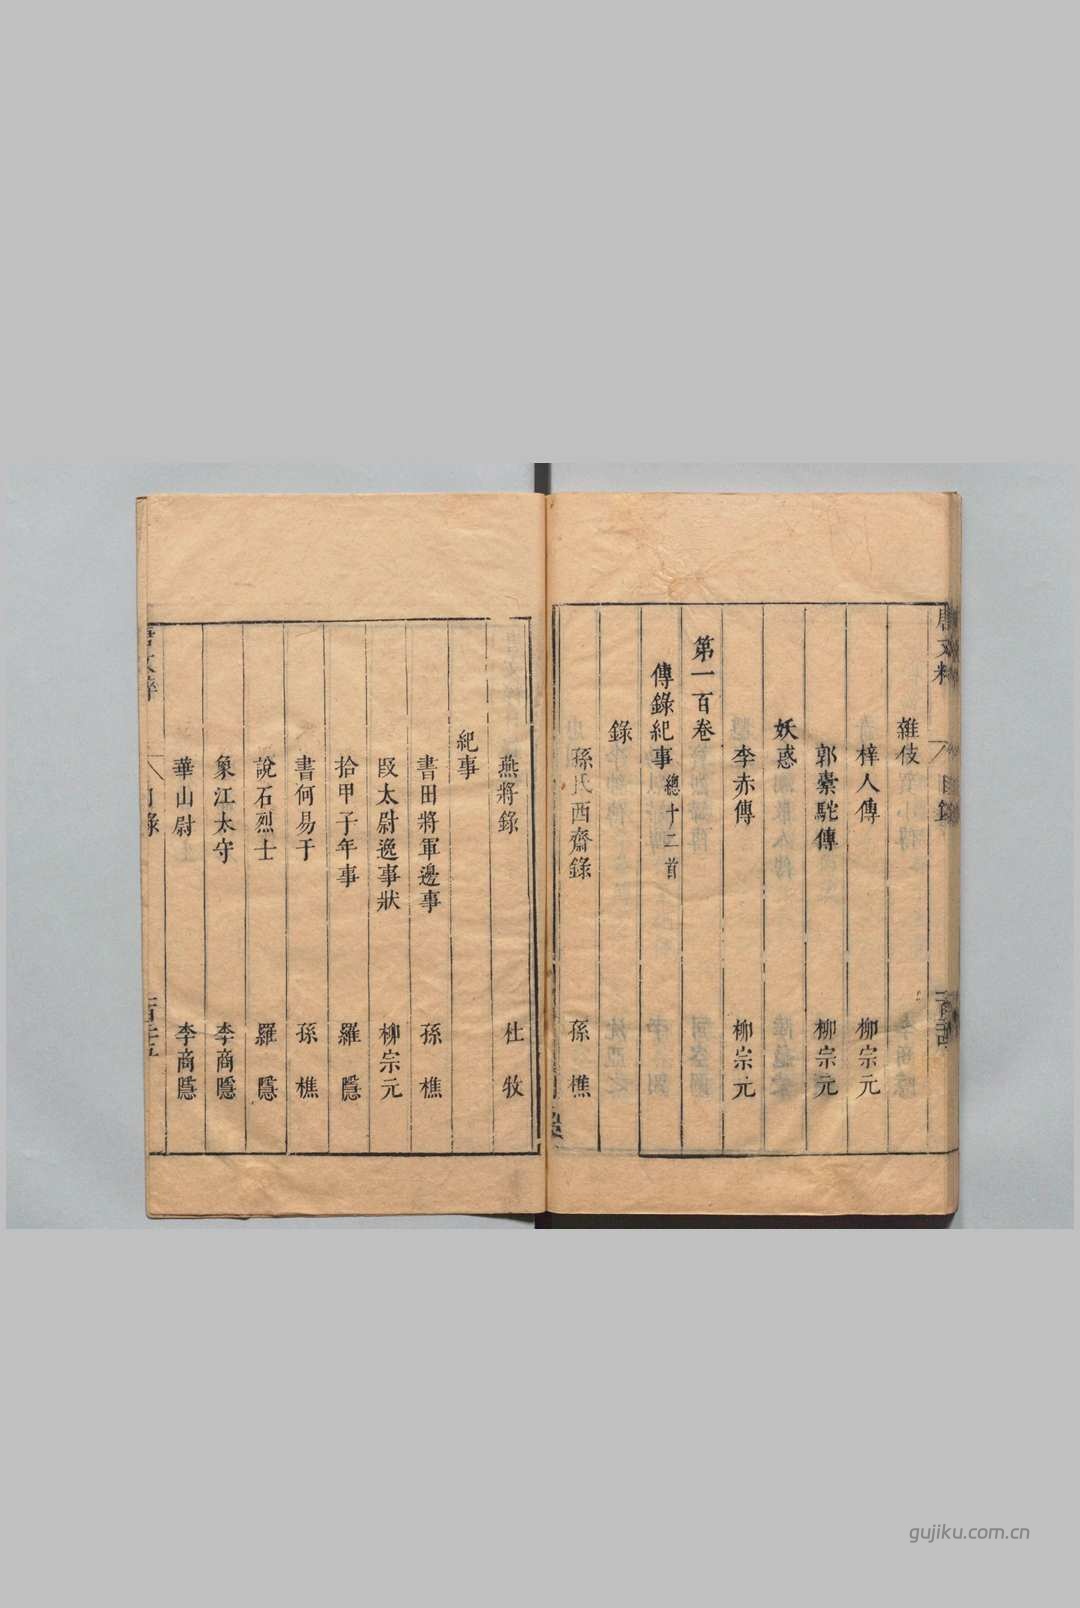 唐文粹 目錄
雜伎
梓人傳 柳宗元
郭橐駝傳 柳宗元
妖惑
李赤傳 柳宗元
第一百卷
傳錄紀事 總十二首
錄
孫氏西齋錄 孫樵
燕將錄 杜牧
紀事
書田將軍邊事 孫樵
段太尉逸事狀 柳宗元
拾甲子年事 羅隱
書何易于 孫樵
說石烈士 羅隱
象江太守 李商隱
華山尉 李商隱
gujiku.com.cn